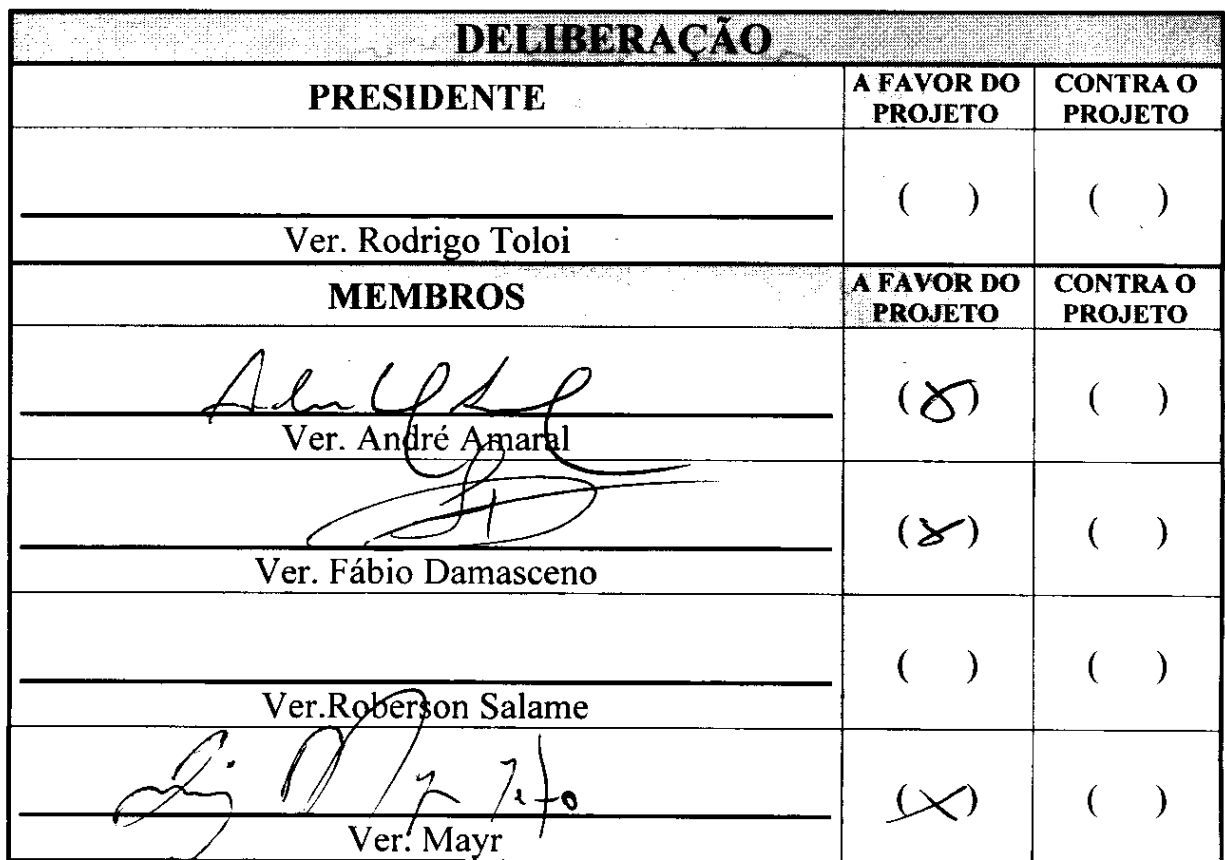 DELIBERAÇÃO
PRESIDENTE A FAVOR DO PROJETO CONTRA O PROJETO
( ) ( )
Ver. Rodrigo Toloi
MEMBROS A FAVOR DO PROJETO CONTRA O PROJETO
(X) ( )
Ver. André Amaral
(X) ( )
Ver. Fábio Damasceno
( ) ( )
Ver.Roberson Salame
(X) ( )
Ver. Mayr